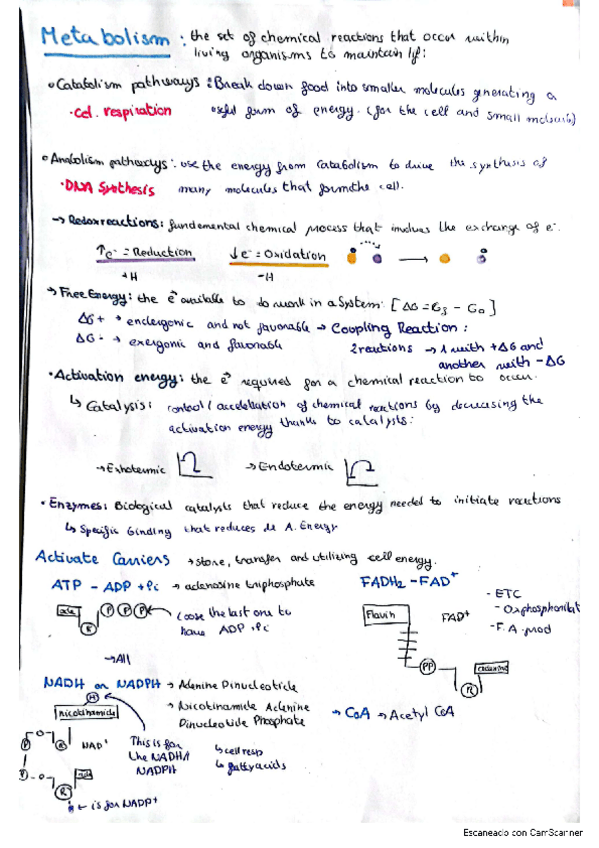 Metabolism : the set of chemical reactions that occur within
living organisms to maintain lif:
• Catabolism pathways : Break down food into smaller molecules generating a
• Cel. respiration useful form of energy. (for the cell and small molecules)
• Anabolism pathways : use the energy from catabolism to drive the synthesis of
• DNA Synthesis many molecules that form the cell.
→ Redox reactions : fundamental chemical process that involves the exchange of e-.
↑e- = Reduction ↓e- = Oxidation
+H -H
→ Free Energy : the e available to do work in a System. [ΔG = Gf - Go]
ΔG + → endergonic and not favorable → Coupling Reaction :
ΔG - → exergonic and favorable 2 reactions → 1 with +ΔG and
another with -ΔG
• Activation energy : the e required for a chemical reaction to occur.
↳ Catalysis : control / acceleration of chemical reactions by decreasing the
activation energy thanks to catalysts.
→ Exhotermic → Endotermic
• Enzymes : Biological catalysts that reduce the energy needed to initiate reactions
↳ Specific binding that reduces de A. Energy
Activate Carriers → store, transfer and utilizing cell energy.
ATP - ADP + Pi → adenosine triphosphate FADH2 - FAD+
P P P Loose the last one to
have ADP + Pi
R
Flavin FAD+
- ETC
- F.A. mod
PP
R
→ All
NADH or NADPH → Adenine Dinucleotide
→ Nicotinamide Adenine
Dinucleotide Phosphate
→ CoA → Acetyl CoA
H
nicotinamide
P R NAD+
This is for
the NADH/
NADPH
↳ cell resp
↳ fatty acids
P R
← is for NADP+
Escaneado con CamScanner